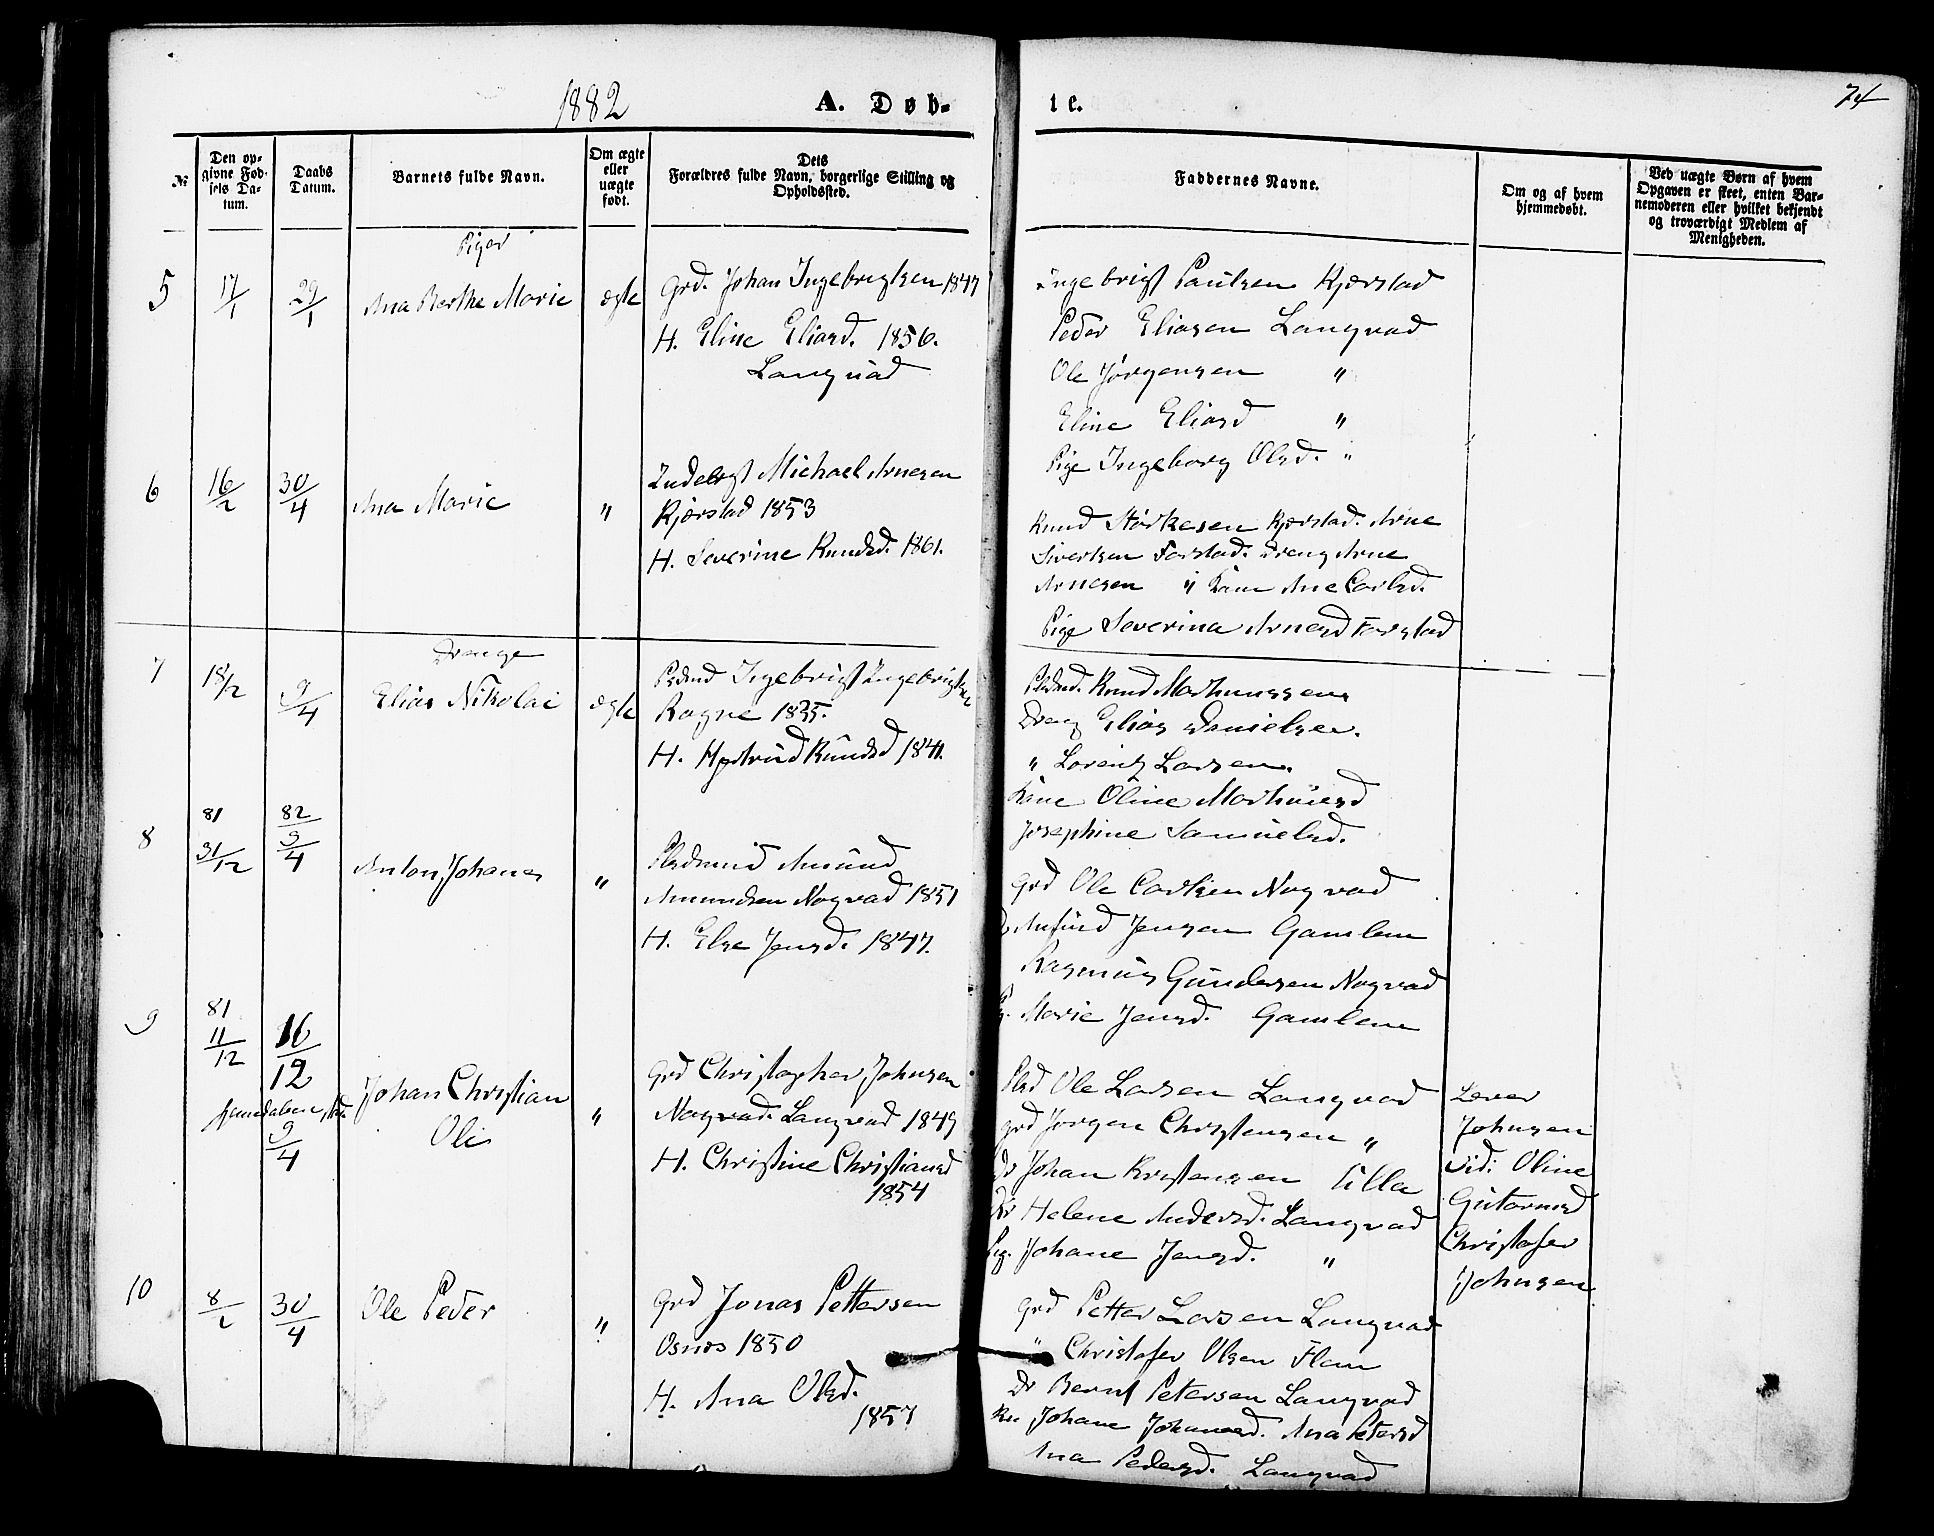 1882
A. Døb-
te.
74
№
Den op-
givne Fød-
sels Da-
tum.
Daabs
Datum.
Barnets fulde Navn.
Om ægte
eller
uægte
født.
Dets
Forældres fulde Navn, borgerlige Stilling og
Opholdssted.
Faddernes Navne.
Om og af hvem
hjemmedøbt.
Ved uægte Børn af hvem
Opgaven er skeet, enten Bar-
nemoderen eller hvilket bekjendt
og troværdigt Medlem af
Menigheden.
Piger
5
17/1
29/1
Ana Berthe Marie
ægte
Grd. Johan Ingebrigtsen 1847
H. Eline Eliasd. 1856.
Langvad
Ingebrigt Paulsen Kjærstad
Peder Eliasen Langvad
Ole Jørgensen "
Eline Eliasd "
Pige Ingeborg Olsd. "
6
16/2
30/4
Ana Marie
"
Michael Arnesen
Kjærstad 1853
H. Severine Knudsd. 1861.
Knud Størkesen Kjærstad. Arne
Sivertsen Farstad. Dreng Arne
Arnesen " Kone Ane Carlsd.
Pige Severina Arnesd Farstad
Drenge
7
18/2
9/4
Elias Nikolai
ægte
Pladsmd Ingebrigt Ingebrigtsen
Rogne 1835.
H. Knudsd 1841.
Pladsmd. Knud
Dreng Elias Danielsen.
" Lorentz Larsen.
Kone Oline
Josephine Samuelsd.
8
81
31/12
82
9/4
Anton Johanes
"
Pladsmd Amund
Amundsen Nogvad 1851
H. Else Jensd. 1847.
Grd Ole Carlsen Nogvad
Jensen Gamlem
Rasmus Gundersen Nogvad
Pg. Marie Jensd. Gamlem
9
81
11/12
16/12
9/4
Johan Christian
Oli
"
Grd Christopher Johnsen
Nogvad. Langvad 1849
H. Christine Christiansd
1854
Plsd Ole Larsen Langvad
Grd Jørgen Christensen "
Dr Johan Kristensen Ulla
Helene Andersd. Langvad
Pig. Johane Jensd. "
Johnsen
vid: Oline
Gutormsd
Christofer
Johnsen
10
8/2
30/4
Ole Peder
"
Grd Jonas Pettersen
Osnæs 1850
H. Ana Olsd.
1857
Grd Petter Larsen Langvad
" Christofer Olsen Flem
Dr Bernt Petersen Langvad
Johane Johansd. Ana Petersd
Ana Pedersd. Langvad